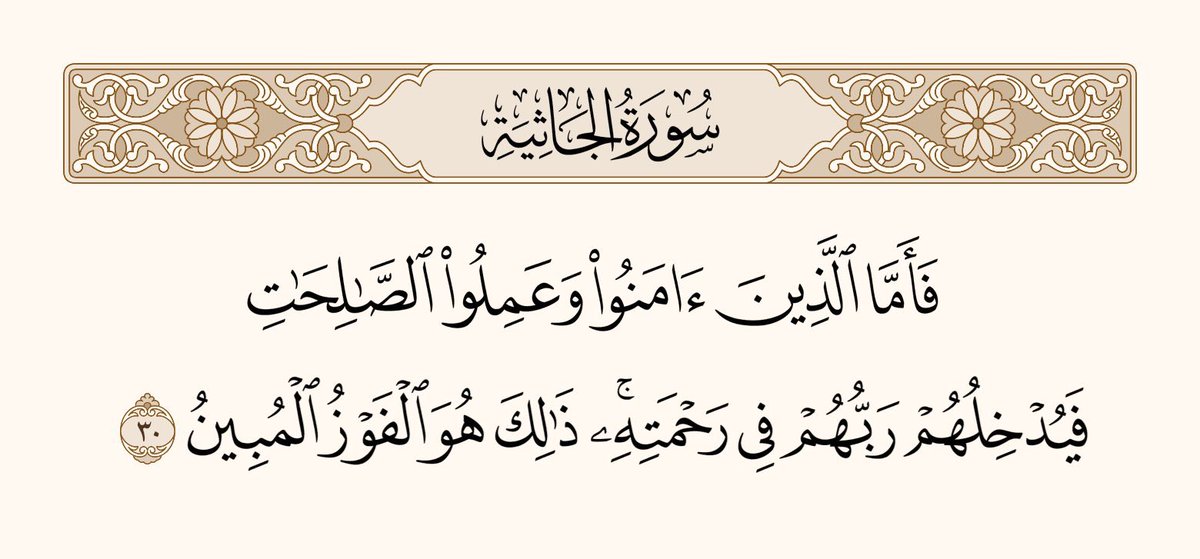 سُورَةُ الجَاثِيَةِ
فَأَمَّا ٱلَّذِينَ ءَامَنُوا۟ وَعَمِلُوا۟ ٱلصَّـٰلِحَـٰتِ
فَيُدْخِلُهُمْ رَبُّهُمْ فِى رَحْمَتِهِۦۚ ذَٰلِكَ هُوَ ٱلْفَوْزُ ٱلْمُبِينُ ٣٠